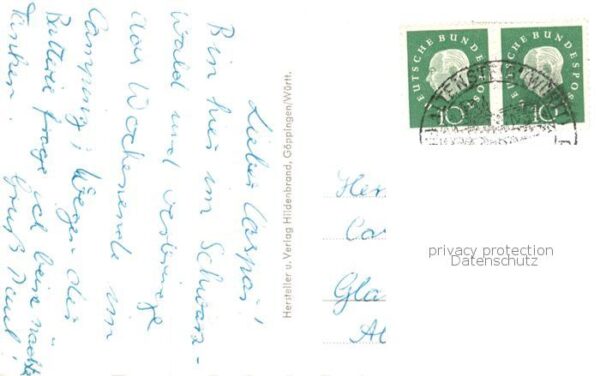 Lieber Caspar!
Bin hier im Schwarz-
wald und verbringe
das Wochenende im
Camping; Wegen der
Batterie frage ich beim nächsten
Tanken.
Gruß
Hersteller u. Verlag Hildenbrand, Göppingen/Württ.
DEUTSCHE BUNDESPOST
10
DEUTSCHE BUNDESPOST
10
Her
Ca
Gla
privacy protection
Datenschutz